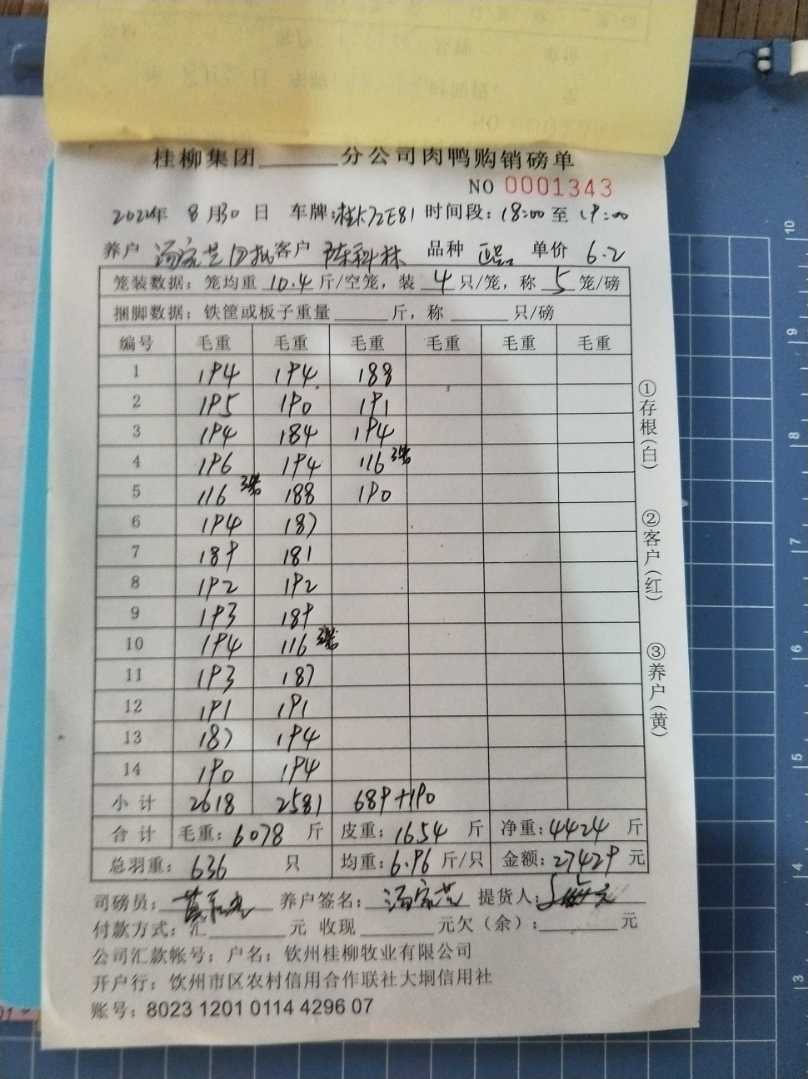 桂柳集团______分公司肉鸭购销磅单
NO 0001343
8月30日 车牌: 时间段: 18:00 至 19:00
养户 客户 陈科林 品种 单价 6.2
笼装数据: 笼均重 10.4 斤/空笼, 装 4 只/笼, 称 5 笼/磅
捆脚数据: 铁筐或板子重量______斤, 称______只/磅
编号 毛重 毛重 毛重 毛重 毛重 毛重
1 194 194 188
2 195 190 191
3 194 184 194
4 196 194 116 3笼
5 116 3笼 188 190
6 194 187
7 189 181
8 192 192
9 193 189
10 194 116 3笼
11 193 187
12 191 191
13 187 194
14 190 194
小计 2618 2581 689+190
合计 毛重: 6078 斤 皮重: 1654 斤 净重: 4424 斤
总羽重: 636 只 均重: 6.96 斤/只 金额: 27429 元
司磅员: 养户签名: 提货人:
付款方式: 汇______元 收现______元欠(余):______元
公司汇款帐号: 户名: 钦州桂柳牧业有限公司
开户行: 钦州市区农村信用合作联社大垌信用社
账号: 8023 1201 0114 4296 07
①存根(白)
②客户(红)
③养户(黄)
10
9
8
7
6
5
4
3